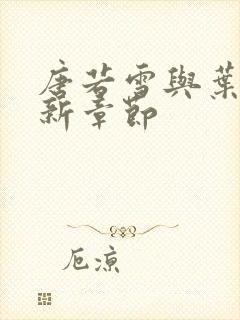 唐若雪與葉
新章節
厄涼